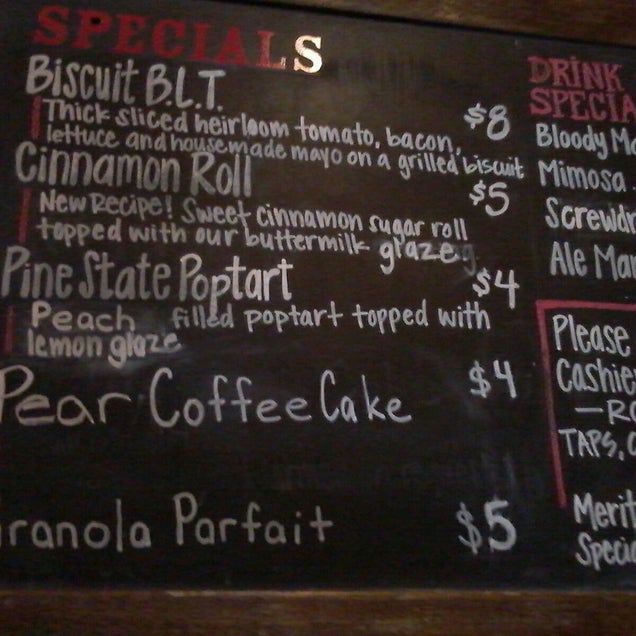 SPECIALS
Biscuit B.L.T. $8
Thick sliced heirloom tomato, bacon,
lettuce and housemade mayo on a grilled biscuit
Cinnamon Roll $5
New Recipe! Sweet cinnamon sugar roll
topped with our buttermilk glaze
Pine State Poptart $4
Peach filled poptart topped with
lemon glaze
Pear Coffee Cake $4
Granola Parfait $5
DRINK
SPECIA
Bloody Ma
Mimosa
Screwdr
Ale Mar
Please
Cashier
— RO
TAPS, C
Merit
Specia